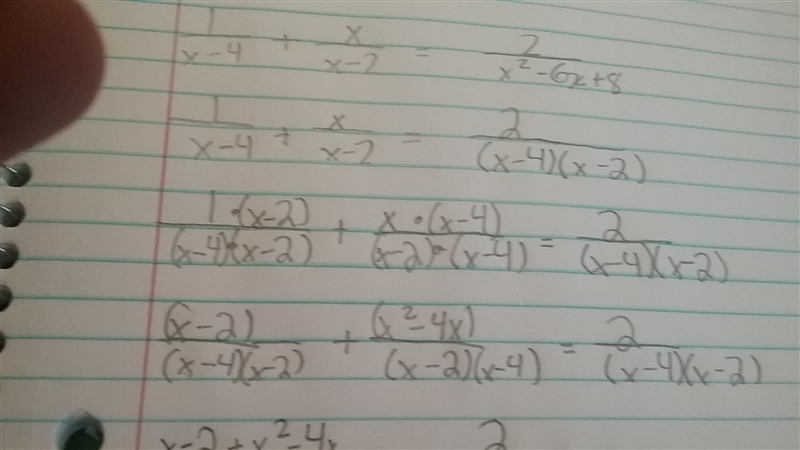 1/(x-4) + x/(x-2) = 2/(x²-6x+8)
1/(x-4) + x/(x-2) = 2/((x-4)(x-2))
1·(x-2)/((x-4)·(x-2)) + x·(x-4)/((x-2)·(x-4)) = 2/((x-4)(x-2))
(x-2)/((x-4)(x-2)) + (x²-4x)/((x-2)(x-4)) = 2/((x-4)(x-2))
x-2+x²-4x 2